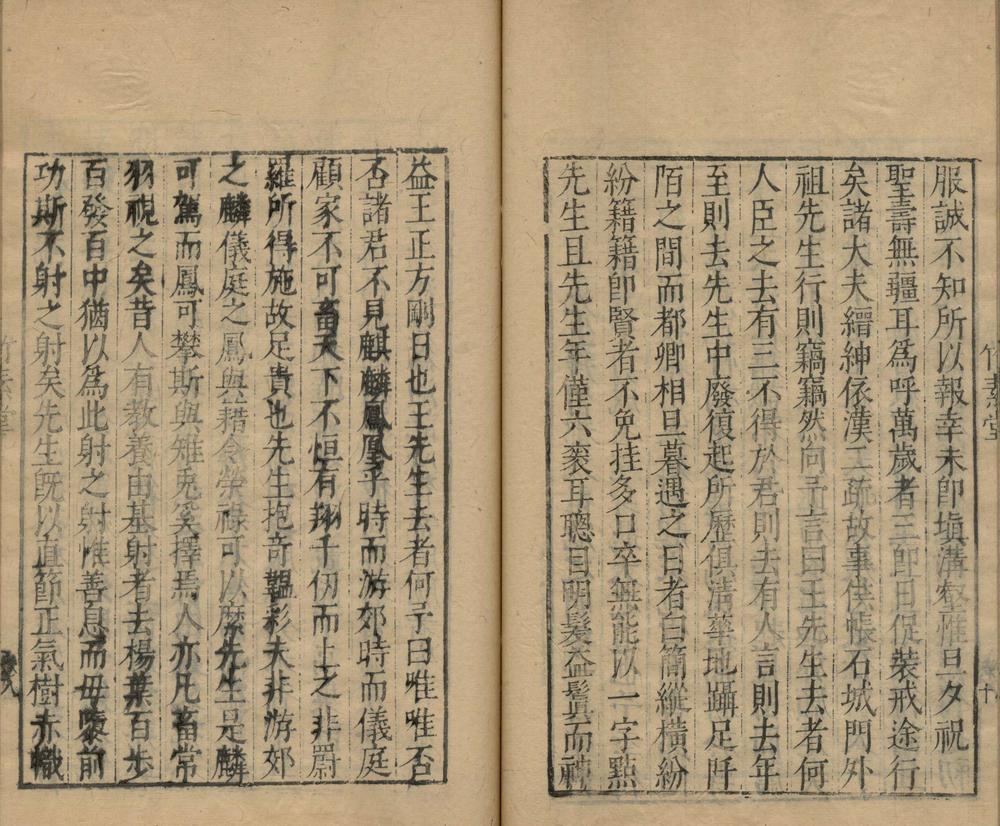 服誠不知所以報幸未卽塡溝壑惟旦夕祝
聖壽無疆耳爲呼萬歲者三卽日促裝戒途行
矣諸大夫縉紳依漢二疏故事供帳石城門外
祖先生行則竊竊然向予言曰王先生去者何
人臣之去有三不得於君則去有人言則去年
至則去先生中廢復起所歷俱淸華地躡足阡
陌之間而都卿相旦暮遇之日者白簡縱橫紛
紛籍籍卽賢者不免挂多口卒無能以一字點
先生且先生年僅六袠耳聰目明髮益鬒而神
竹素堂
益王正方剛日也王先生去者何予曰唯唯否
否諸君不見麒麟鳳凰乎時而游郊時而儀庭
顧家不可畜天下不恒有翔千仞而上之非罻
羅所得施故足貴也先生抱奇韞彩夫非游郊
之麟儀庭之鳳與藉令榮祿可以縻先生是麟
可駕而鳳可攀斯與雉兎奚擇焉人亦凡畜常
羽視之矣昔人有教養由基射者去楊葉百步
百發百中猶以爲此射之射惟善息而毋隳前
功斯不射之射矣先生旣以直節正氣樹赤幟